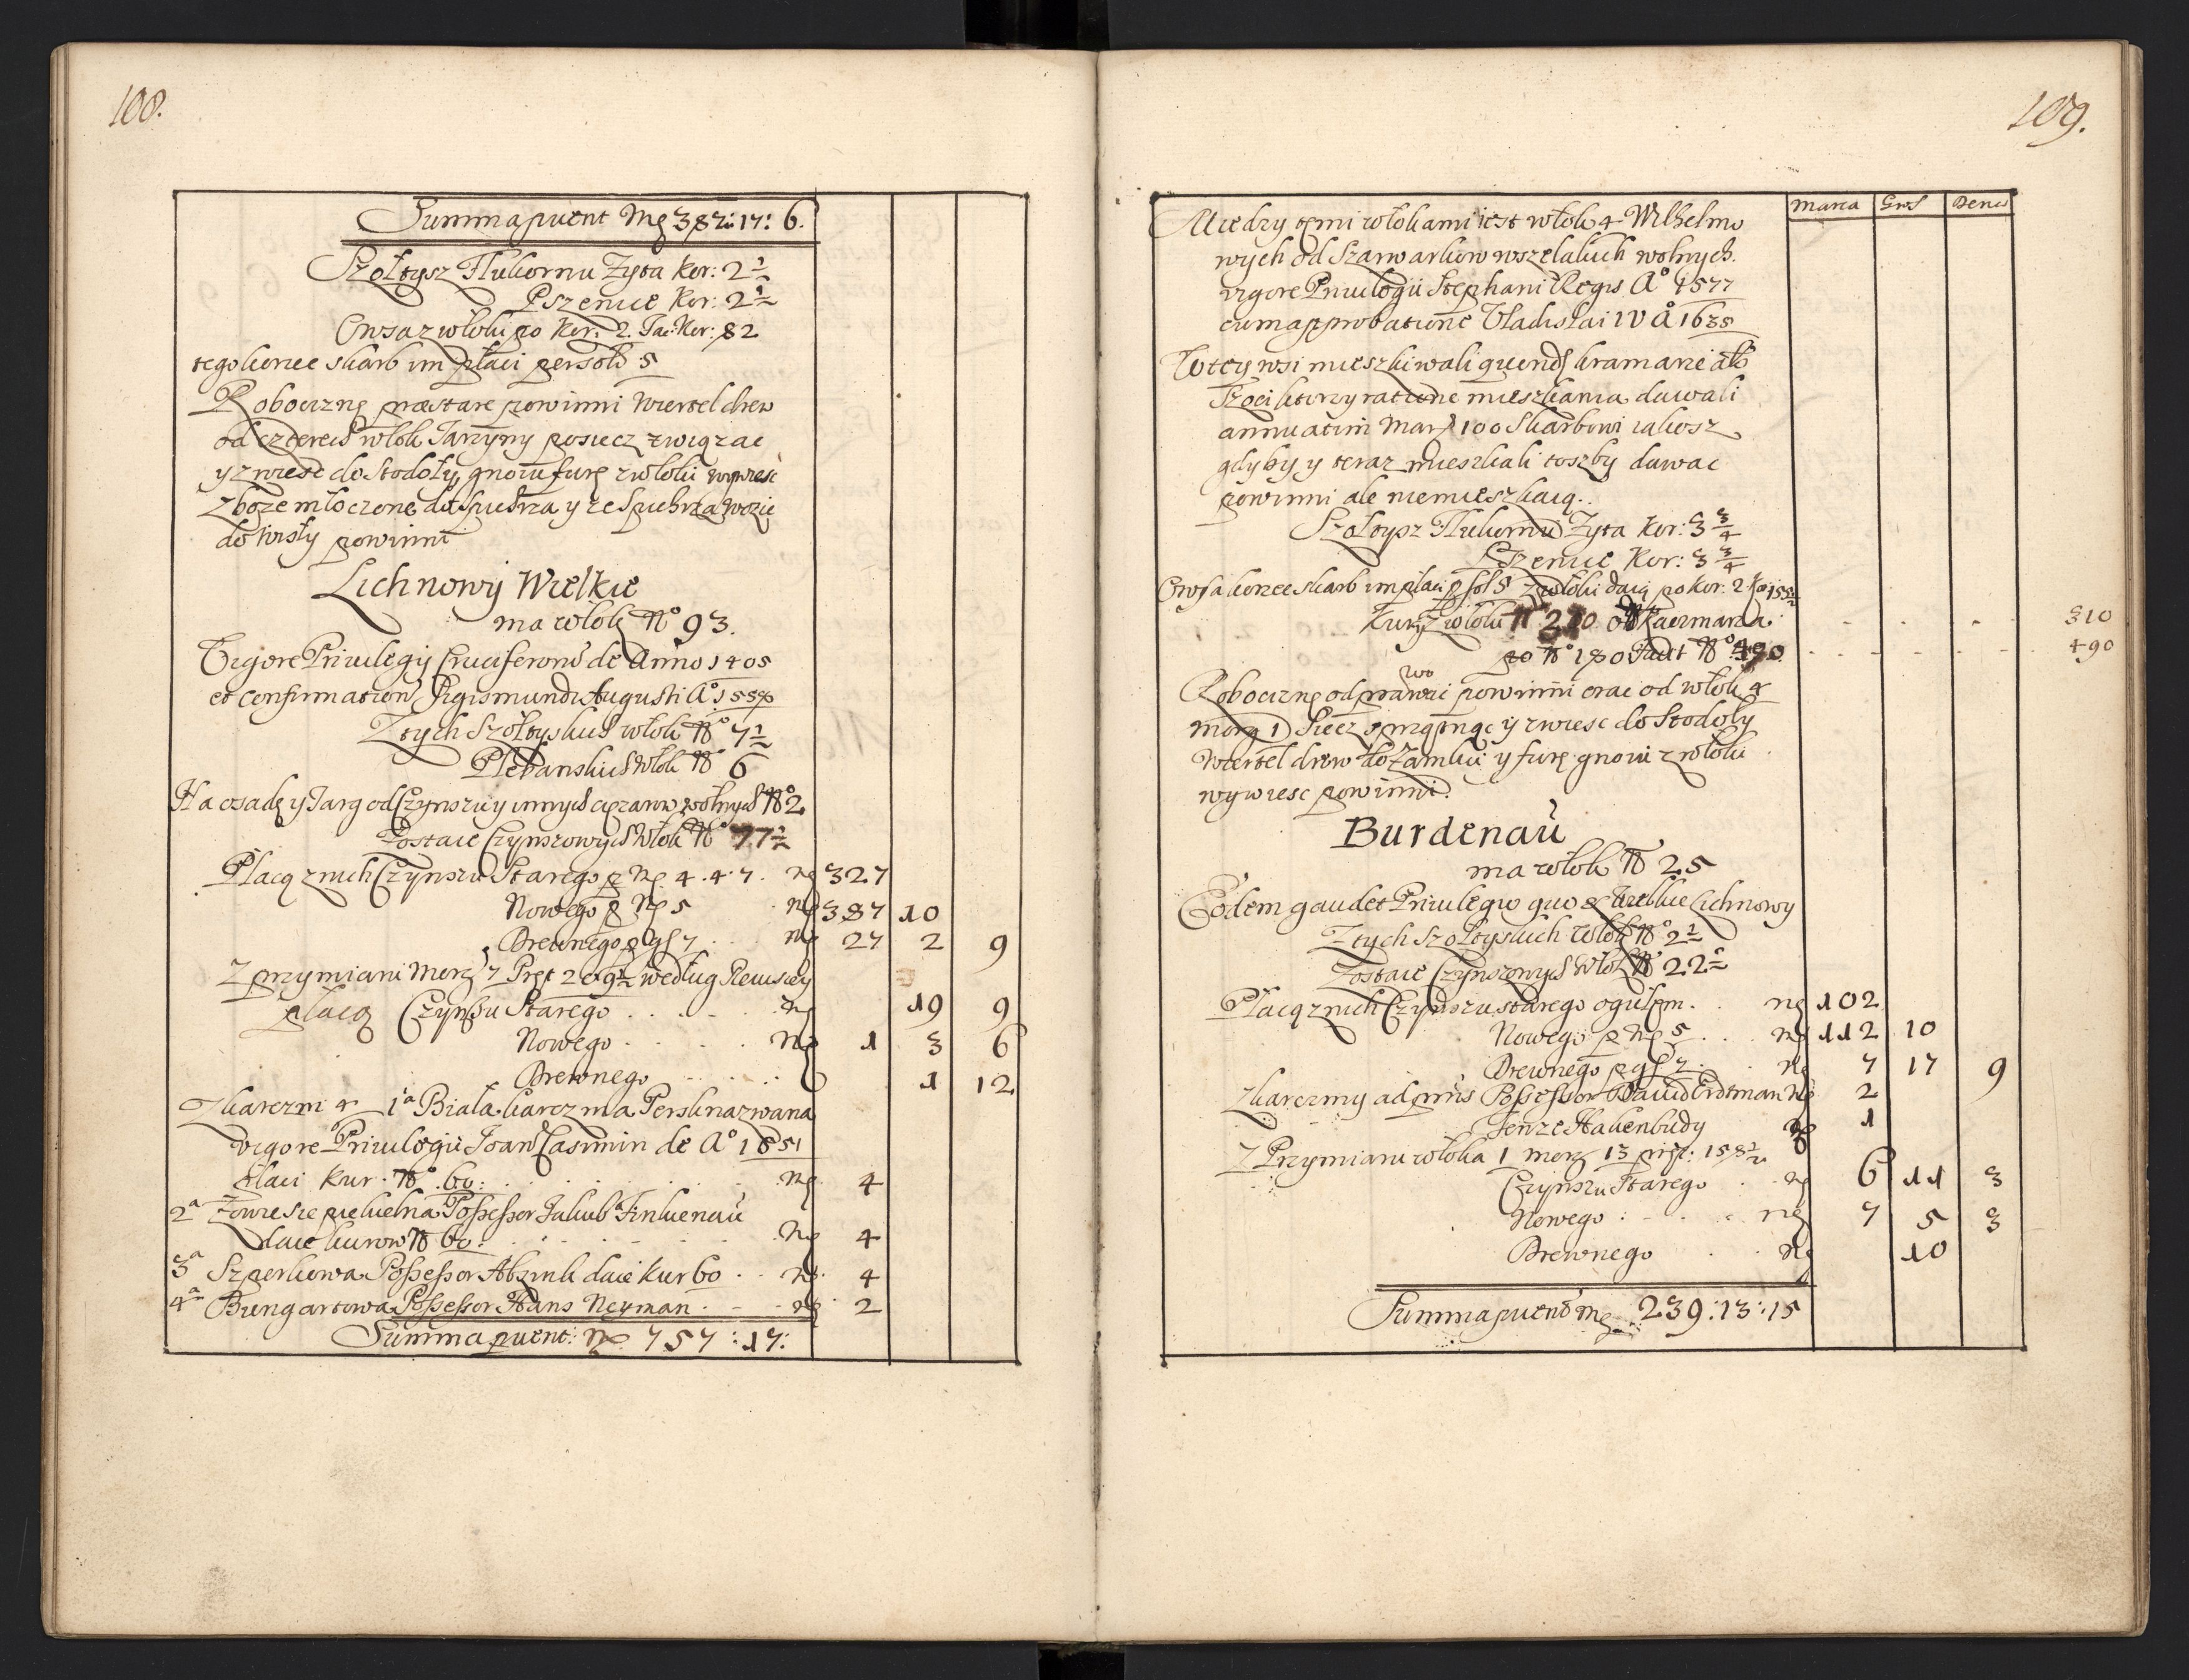 108.
Summa puent Mg 387: 17: 6.
Szołtysz Tłukornu Zyta Kor: 2½
Pszenice Kor: 2½
Owsa z włoki po Kor: 2. Fac: Kor: 82
tego korzec skarb im płaci per solo 5
Robocziznę praestare powinni Wiertel drew
od czterech włok Jarzyny posiecz związac
y zwiesc do Stodoły, gnoiu furę z włoki wywiesc
zboze młoczone do Spichrza y ze Spichrza wozic
do Wisły powinni
Lichnowy Wielkie
ma włok No 93.
Vigore Privilegij Cruciferorū de Anno 1405
et Confirmation Sigismundi Augusti Ao 1558
Z tych Szołtyskich włok No 7½
Plebanskich Włok No 6
Na osadę y Targ od Czynszu y innych cięzarow wolnych No 2
Zostaie Czynszowych Włok No 77½
Płacą z nich Czynszu Starego p Mg 4. 4. 7. Mg 327
Nowego p Mg 5 Mg 387 10
Drewnego p gs 7 Mg 27 2 9
Z przymiani Morg 7 Pręt 209½ według Rewisiey
płacą Czynszu Starego Mg 19 9
Nowego Mg 1 3 6
Drewnego 1 12
Z karczmi 4 1a Biała karczma Persk nazwana
vigore Privilegii Joan Casimiri de Ao 1651
płaci Kur No 60: Mg 4
2a Zowie sie piekielna Possessor Jakub Finkenau
daie kurow No 60: Mg 4
3a Szperkowa Possessor Absink daie kur 60 Mg 4
4a Bungartowa Possessor Hans Neyman Mg 2
Summa puent: Mg 757: 17:
109.
Marca Gros Denar
Miedzy temi włokami iest włok 4 Wilhelmo
wych od Szarwarkow wszelakich wolnych.
vigore Privilegii Stephani Regis Ao 1577
cum approbatione Vladislai IV Ao 1635
W tey wsi mieszkiwali quond kramarze abo
Szoci ktorzy ratione mieszkania dawali
annuatim Mar 100 Skarbowi iakosz
gdyby y teraz mieszkali toszby dawac
powinni ale niemieszkaią.
Szołtysz Tłukornu Zyta Kor: 3¾
Pszenice Kor: 3¾
Owsa korzec skarb im płaci p sol 5 z włoki daią po Kor: 2 155
Kur z włoki No 310 od Kaczmarza 310
po No 180 Facit No 490 490
Roboczinę odprawowai powinni orac od włok 4
morg 1 Siecz sprzątnąc y zwiesc do Stodoły
Wiertel drew do Zamku y furę gnoiu z włoki
wywiesc powinni.
Burdenau
ma włok No 25
Eodem gaudet Privilegio quo et Wielkie Lichnowy
Z tych Szołtyskich Włok No 2½
Zostaie Czynszowych Włok No 22½
Płacą z nich Czynszu starego ogułem Mg 102
Nowego p Mg 5 Mg 112 10
Drewnego p gs 7 Mg 7 17 9
Z karczmy ad pnūs Possessor Dawid Erdtman Mg 2
Tenze Hakenbudy Mg 1
Z Przymiaru włoka 1 morg 13 pręt: 158½
Czynszu Starego Mg 6 11 3
Nowego Mg 7 5 3
Drewnego Mg 10
Summa puent Mg 239: 13: 15